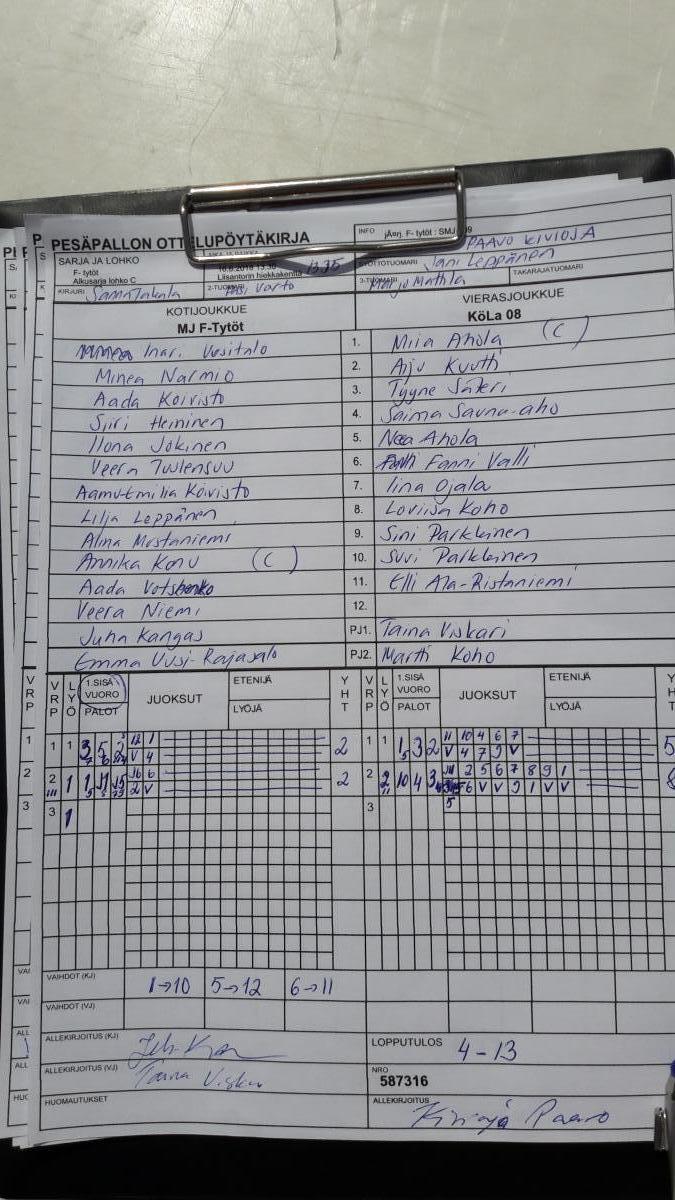 PESÄPALLON OTTELUPÖYTÄKIRJA
INFO
jÄorj. F- tytöt : SMJ
PAAVO KIVIOJA
SARJA JA LOHKO
F- tytöt
Alkusarja lohko C
Liisantorin hiekkakenttä
13.35
SYÖTTÖTUOMARI
Jani Leppänen
KIRJURI
2-TUOMARI
Varto
3-TUOMARI
Marju Mattila
TAKARAJATUOMARI
KOTIJOUKKUE
VIERASJOUKKUE
MJ F-Tytöt
KöLa 08
Inari Uusitalo 1. Miia Ahola (C)
Minea Narmio 2. Aiju Kuutti
Aada Koivisto 3. Tyyne Säteri
Siiri Heininen 4. Saima Sauna-aho
Ilona Jokinen 5. Nea Ahola
Veera Tuulensuu 6. Fanni Valli
Aamu-Emilia Koivisto 7. Iina Ojala
Lilja Leppänen 8. Loviisa Koho
Alma Mustaniemi 9. Sini Parkkinen
Annika Konu (C) 10. Suvi Parkkinen
Aada 11. Elli Ala-Ristaniemi
Veera Niemi 12.
Juha Kangas PJ1. Taina Viskari
Emma Uusi-Rajasalo PJ2. Martti Koho
VRP VRP LYÖ 1.SISÄVUORO PALOT JUOKSUT ETENIJÄ LYÖJÄ YHT VRP LYÖ 1.SISÄVUORO PALOT JUOKSUT ETENIJÄ LYÖJÄ YHT
1 1 1 3 5 2 12 1 2 1 1 1 3 2 11 10 4 6 7 5
V 4 V 4 7 9 V
2 2 1 6 2 2 2 10 4 3 2 5 6 7 8 9 1
2 V 6 V V 9 1 V V
3 3 1 3
VAIHDOT (KJ) 1→10 5→12 6→11
VAIHDOT (VJ)
ALLEKIRJOITUS (KJ)
LOPPUTULOS 4-13
ALLEKIRJOITUS (VJ) Taina Viskari
NRO
587316
HUOMAUTUKSET
ALLEKIRJOITUS
Kivioja Paavo